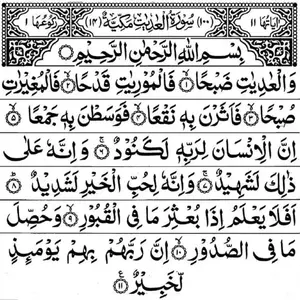 اٰیَاتُهَا ١١ (١٠٠) سُوْرَةُ الْعٰدِیٰتِ مَكِّیَّةٌ (١٤) رُكُوْعُهَا ١
بِسْمِ اللّٰهِ الرَّحْمٰنِ الرَّحِیْمِ
وَالْعٰدِیٰتِ ضَبْحًا ۙ‏﴿۱﴾ فَالْمُوْرِیٰتِ قَدْحًا ۙ‏﴿۲﴾ فَالْمُغِیْرٰتِ
صُبْحًا ۙ‏﴿۳﴾ فَاَثَرْنَ بِهٖ نَقْعًا ۙ‏﴿۴﴾ فَوَسَطْنَ بِهٖ جَمْعًا ۙ‏﴿۵﴾
اِنَّ الْاِنْسَانَ لِرَبِّهٖ لَكَنُوْدٌ ۚ‏﴿۶﴾ وَاِنَّهٗ عَلٰی
ذٰلِكَ لَشَهِیْدٌ ۚ‏﴿۷﴾ وَاِنَّهٗ لِحُبِّ الْخَیْرِ لَشَدِیْدٌ ؕ‏﴿۸﴾
اَفَلَا یَعْلَمُ اِذَا بُعْثِرَ مَا فِی الْقُبُوْرِ ۙ‏﴿۹﴾ وَحُصِّلَ
مَا فِی الصُّدُوْرِ ۙ‏﴿۱۰﴾ اِنَّ رَبَّهُمْ بِهِمْ یَوْمَئِذٍ
لَّخَبِیْرٌ ‏﴿۱۱﴾